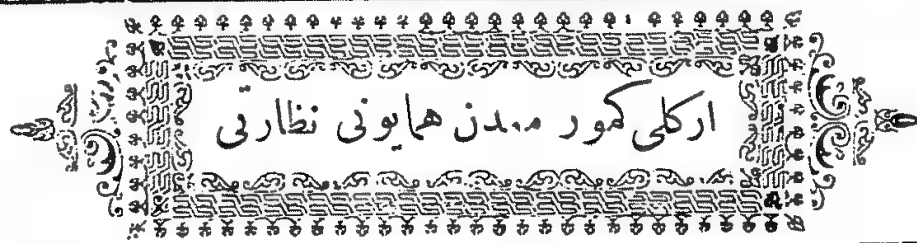 اركلى كمور معدن همايونى نظارتى